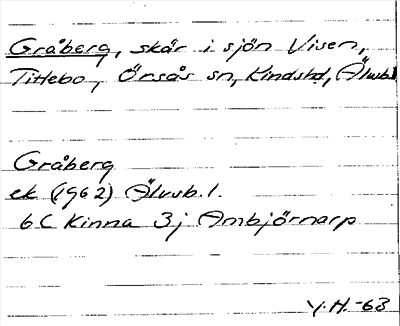 Gråberg, skär i sjön Visen,
Tittebo, Önsås sn, Kindshd, Älvsb.l
Gråberg
ek (1962) Älvsb. l.
6C Kinna 3j Ambjörnarp
Y.H.-63